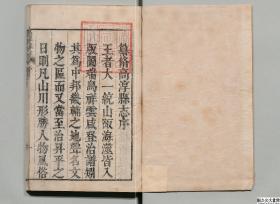 纂脩高淳縣志序
王者大一統山陬海澨皆入
版圖瑞鳥祥雲咸登治譜矧
其為中邦畿輔之地聲名文
物之區而又當至治昇平之
日則凡山川形勝人物風俗